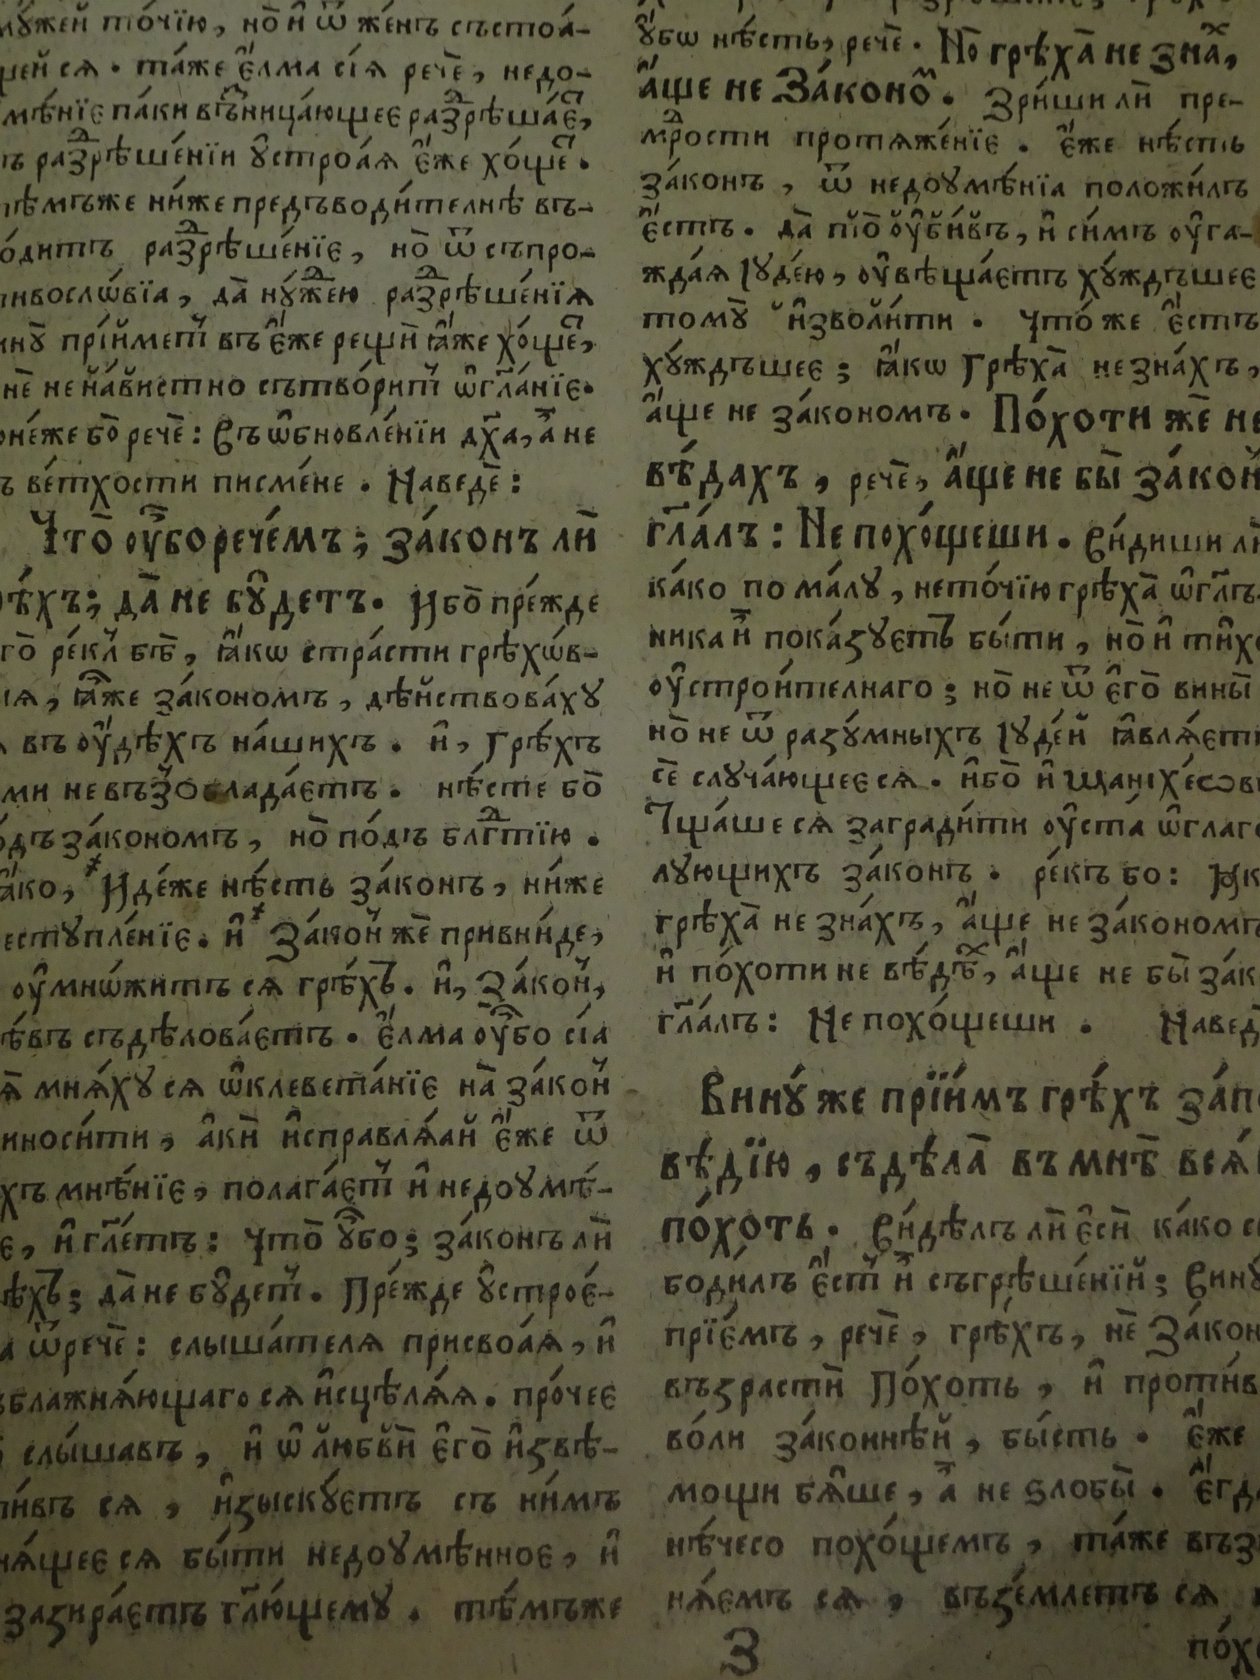 мꙋ́жей то́чїю, но̀ и҆ ѿ же́нъ състоѧ́-
щей сѧ. та́же є҆́лма сїѧ̀ речѐ, недо-
мѣ́нїе па́ки възница́ющее разрѣша́є,
разрѣше́нїи ᲂу҆строѧ́ѧ є҆́же хо́ще.
тѣ́мъже ни́же предъводи́телнѣ въ-
о́дитъ разрѣше́нїе, но̀ ѿ съпро-
тивосло́вїа, да̀ нꙋ́жею разрѣше́нїѧ
инꙋ̀ прїи́метъ въ є҆́же рещѝ ꙗ҆́же хо́ще,
нѐ нена́вистно сътвори́тъ ѡ҆гла́нїе.
оне́же бо̀ речѐ: Въ ѡ҆бновле́нїи дх҃а, а҆ не
ве́тхости писме́не. Наведѐ:
Что̀ ᲂу҆́бо рече́мъ; зако́нъ лѝ
рѣ́хъ; да̀ не бꙋ́детъ. И҆бо̀ пре́жде
го̀ ре́клъ бѣ̀, ꙗ҆́кѡ стра́сти грѣхо́в-
їѧ, ꙗ҆́же зако́номъ, дѣ́йствовахꙋ
въ ᲂу҆́дѣхъ на́шихъ. и҆, Грѣ́хъ
ми не възⷣоблада́етъ. нѣ́сте бо̀
о́дъ зако́номъ, но̀ по́дъ бл҃гⷣтїю.
а҆́ко, И҆дѣ́же нѣ́сть зако́нъ, ни́же
естꙋпле́нїе. и҆ Зако́нъ жѐ привни́де,
ᲂу҆мно́житъ сѧ грѣ́хъ. и҆, Зако́нъ,
ѣ́въ съдѣ́ловаетъ. Є҆́лма ᲂу҆́бо сїа̀
мнѧ́хꙋ сѧ ѡ҆клевета́нїе на̀ зако́нъ
иноси́ти, а҆́ки и҆справлѧ́ѧй є҆́же ѿ
хъ мнѣ́нїе, полага́етъ и҆ недоꙋмѣ́-
е, и҆ гл҃етъ: Что̀ ᲂу҆́бо; зако́нъ лѝ
ѣ́хъ; да̀ не бꙋ́детъ. Пре́жде ᲂу҆строе́-
а ѿречѐ: слы́шателѧ присвоѧ́ѧ, и҆
блажнѧ́ющаго сѧ и҆сцѣлѧ́ѧ. про́чее
слы́шавъ, и҆ ѡ҆ любвѝ є҆го̀ и҆звѣ-
ти́въ сѧ, и҆зыскꙋ́етъ съ ни́мъ
нѧ́щее сѧ бы́ти недоꙋмѣ́нное, и҆
зазира́етъ гл҃ющемꙋ. тѣ́мъже
ᲂу҆́бѡ нѣ́сть, речѐ. Но̀ грѣха̀ не зна́х,
а҆́ще не Зако́ном. Зри́ши лѝ пре-
мрⷣости протѧже́нїе. є҆́же нѣ́сть
зако́нъ, ѿ недоꙋмѣ́нїа положи́лъ
є҆́стъ. да̀ по̀ ᲂу҆би́въ, и҆ си́мъ ᲂу҆га-
жда́ѧ І҆ꙋде́ю, ᲂу҆вѣща́етъ хꙋ́ждъшее
томꙋ̀ и҆зволи́ти. Что́ же є҆́стъ
хꙋ́ждъшее; ꙗ҆́кѡ Грѣха̀ не зна́хъ,
а҆́ще не зако́номъ. По́хоти жѐ не
вѣ́дахъ, речѐ, а҆́ще не бы̀ зако́нъ
гл҃алъ: Не похо́щеши. Ви́диши лѝ
ка́ко по ма́лꙋ, не то́чїю грѣха̀ ѡ҆гл҃ъ-
ника и҆̀ пока́зꙋетъ бы́ти, но̀ и҆ ти́х
ᲂу҆строи́телнаго; но̀ не ѿ є҆го̀ вины̀
но̀ не ѿ разꙋ́мныхъ І҆ꙋде́й ꙗ҆влѧ́етъ
сѐ слꙋча́ющее сѧ. и҆бо̀ и҆ Манїхе́ѡвъ
Тща́ше сѧ загради́ти ᲂу҆ста́ ѡ҆глаго
лꙋющихъ зако́нъ. ре́къ бо:
грѣха̀ не зна́хъ, а҆́ще не зако́номъ
и҆ по́хоти не вѣ́дѣх, а҆́ще не бы̀ зак
гл҃алъ: Не похо́щеши. Навед
Винꙋ́ же прїи́мъ грѣ́хъ за́по
вѣ́дїю, съдѣ́ла въ мнѣ̀ всѧ́
по́хоть. Ви́дѣлъ лѝ є҆сѝ ка́ко с
боди́лъ є҆́стъ и҆̀ съгрѣше́нїй; Винꙋ
прїе́мъ, речѐ, грѣ́хъ, нѐ Зако́н
възрастѝ По́хоть, и҆ проти́в
во́ли зако́ннѣй, бы́сть. є҆́же
мощи бѧ́ше, а҆ не ѕло́бы. Є҆гд
нѣ́чесо похо́щемъ, та́же въз
нѧ́емъ сѧ, възе́млетъ сѧ
З
по́х